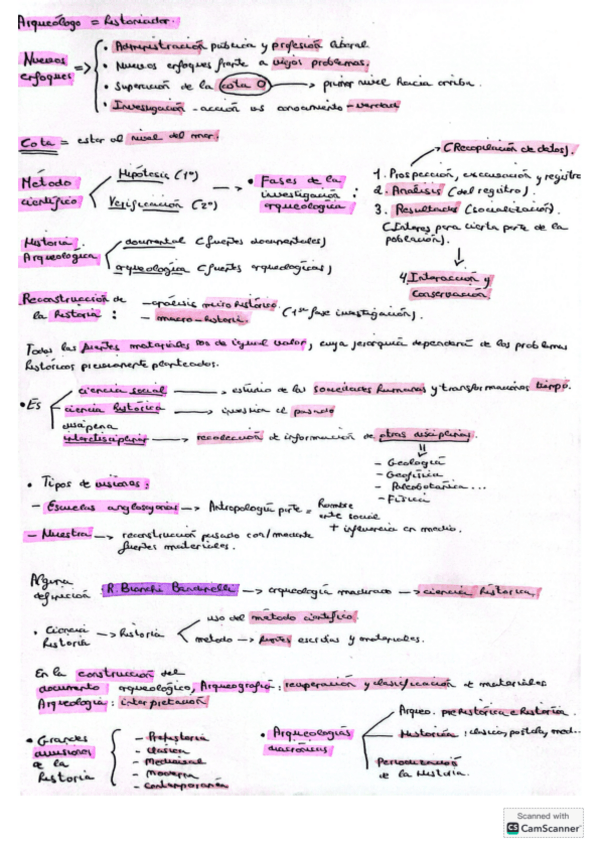 Arqueólogo = historiador.
Nuevos enfoques =>
• Administración pública y profesión liberal.
• Nuevos enfoques frente a viejos problemas.
• Superación de la cota 0 → primer nivel hacia arriba.
• Investigación - acción vs conocimiento - verdad
Cota = estar al nivel del mar.
Método científico
Hipótesis (1º)
Verificación (2º)
• Fases de la investigación arqueológica :
(Recopilación de datos).
1. Prospección, excavación y registro
2. Analisis (del registro).
3. Resultados (socialización).
(Interes para cierta parte de la población).
4. Interacción y conservación
Historia Arqueológica
documental (fuentes documentales)
arqueológica (fuentes arqueológicas)
Reconstrucción de la historia :
- análisis micro histórico.
- macro-historia.
(1ª fase investigación).
Todas las fuentes materiales son de igual valor, cuya jerarquía dependerá de los problemas
históricos previamente planteados.
• Es
ciencia social → estudio de las sociedades humanas y transformaciones tiempo.
ciencia histórica → investiga el pasado
disciplina interdisciplinar → recolección de información de otras disciplinas.
- Geología
- Geofísica
- Paleobotánica...
- Física
• Tipos de visiones :
- Escuelas anglosajonas → Antropología parte = hombre ente social
+ influencia en medio.
- Nuestra → reconstrucción pasado con/mediante
fuentes materiales.
Alguna definición R. Bianchi Bandinelli → arqueología madurado → ciencia histórica.
• Ciencia historia → Historia
uso del método científico.
metodo → fuentes escritas y materiales.
En la construcción del
documento arqueológico, Arqueografía : recuperación y clasificación materiales
Arqueología : interpretación
• Grandes divisiones de la historia
- Prehistoria
- Clásica
- Medieval
- Moderna
- Contemporánea
• Arqueologías diacrónicas
Arqueo. prehistórica e historia.
Historia : clásica, postcla, med..
Periodización de la Historia.
Scanned with
CS CamScanner